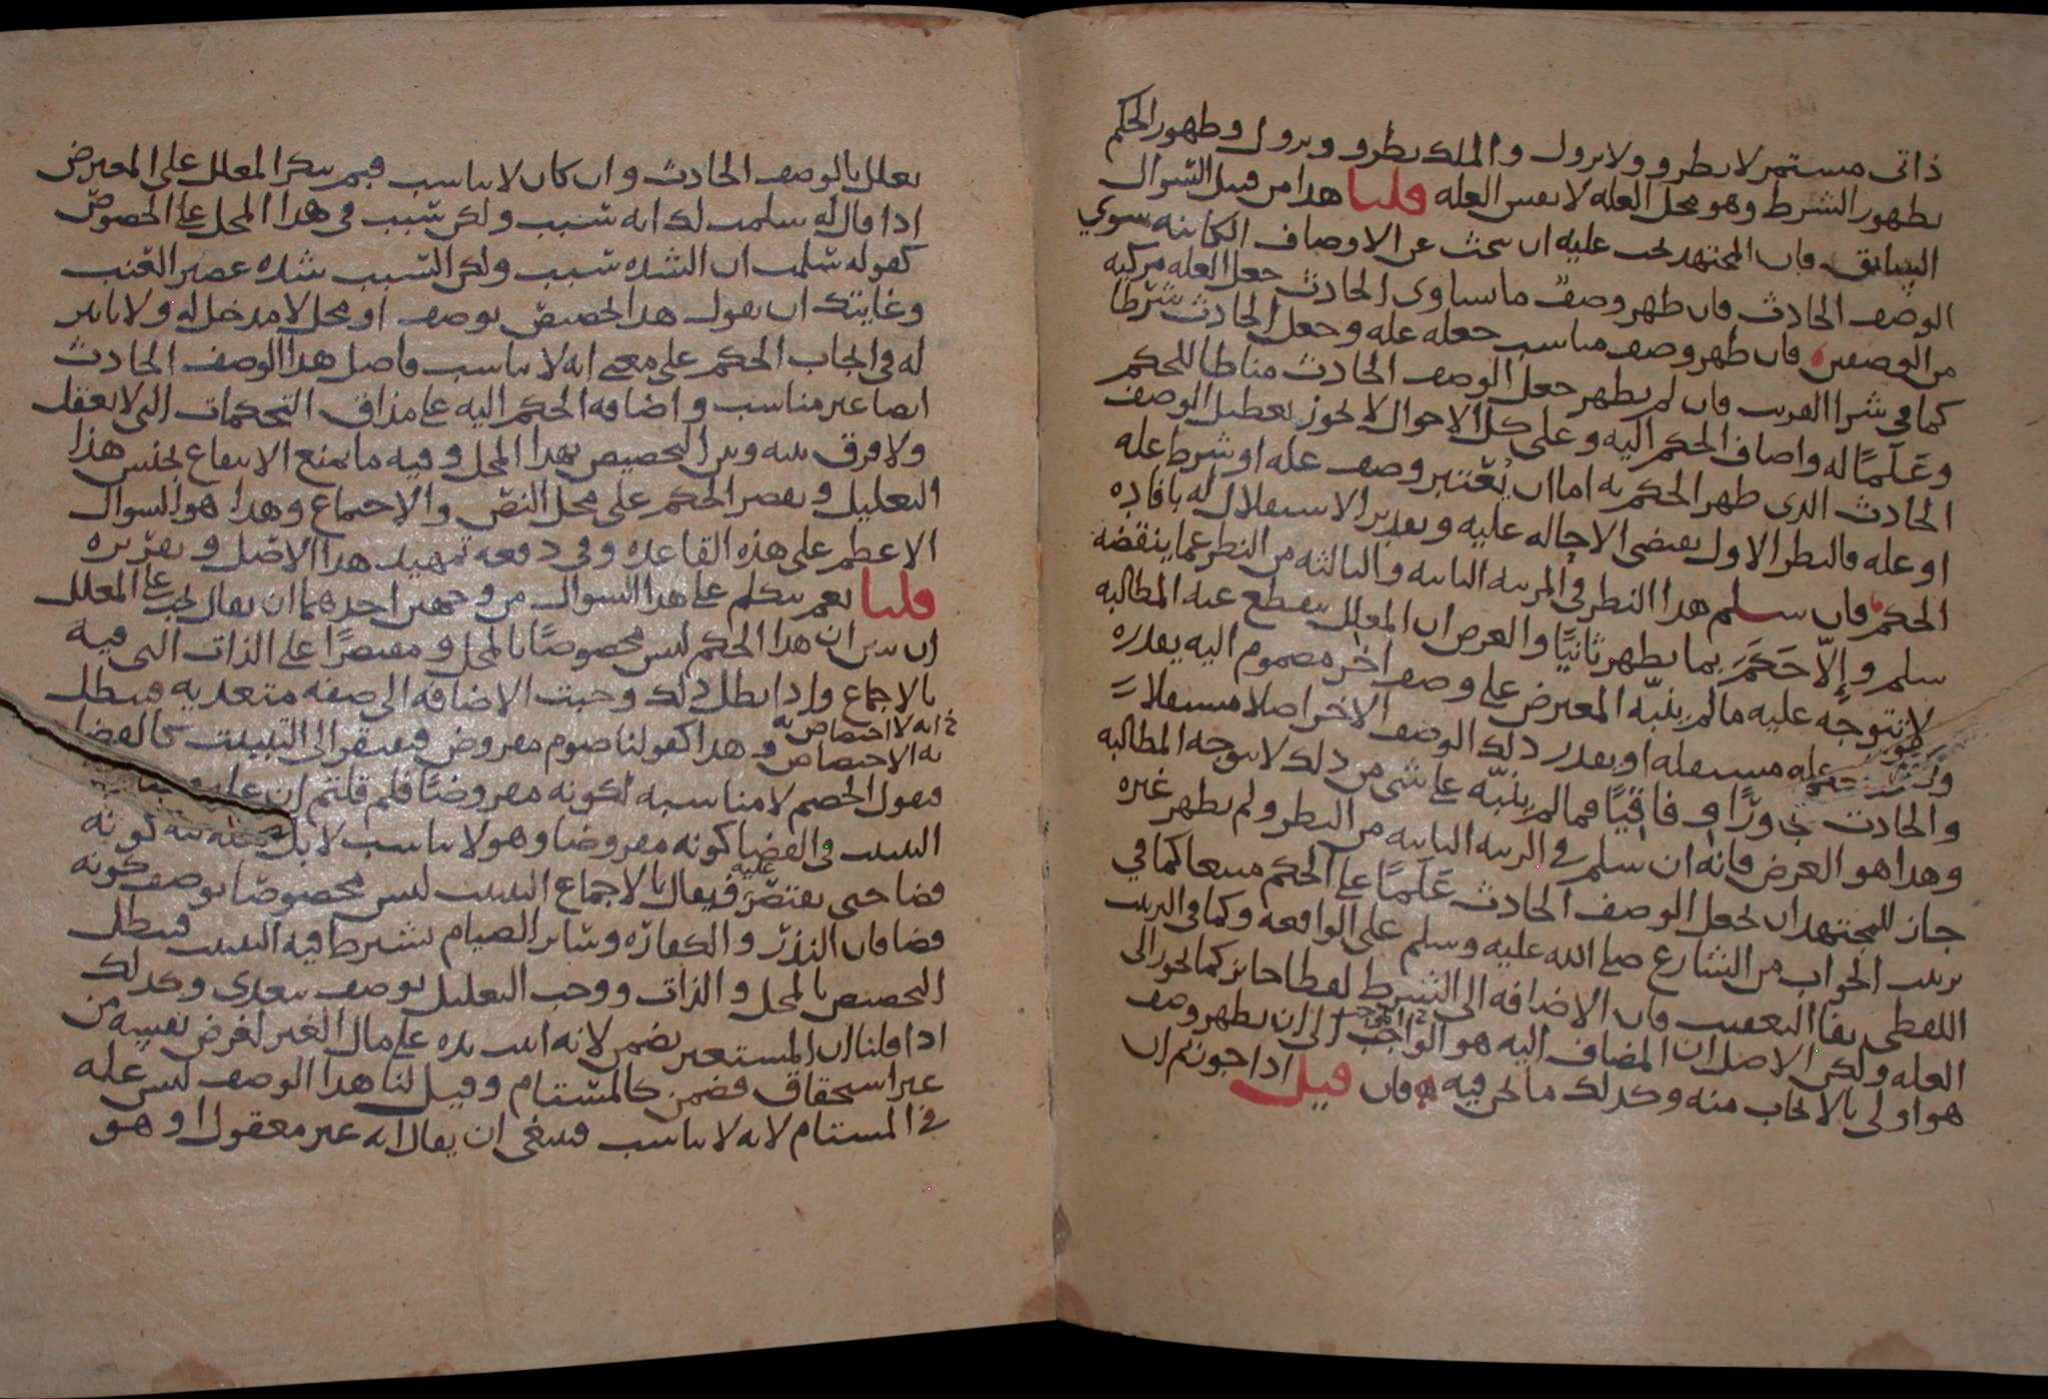 ذاتى مستمر لا يطرو ولا يزول والملك يطرو ويزول وظهور الحكم
بظهور الشرط وهو محل العله لا نفس العله قلنا هدا من قبيل السوال
السابق فان المجتهد يجب عليه ان يبحث عن الاوصاف الكائنه سوي
الوصف الحادث فان ظهر وصف ما يساوى الحادث جعل العله مركبه
من الوصفين فان ظهر وصف مناسب جعله عله وجعل الحادث شرطا
كما في شرا القريب فان لم يظهر جعل الوصف الحادث مناطا للحكم
وعَلَمًا له واضاف الحكم اليه وعلى كل الاحوال لا يجوز تعطيل الوصف
الحادث الدى ظهر الحكم به اما ان يُعْتبر وصف عله او شرط عله
او عله فالنظر الاول يقتضى الاحاله عليه وتقدير الاستقلال له بافاده
الحكم فان سلم هدا النظر في المرتبه الثانيه والثالثه من النظر عما ينقضه
سلم وإلّا حَكَمَ بما يظهر ثانيًا والغرض ان المعلل ينقطع عنه المطالبه
لا تتوجه عليه ما لم ينبّه المعترض على وصف اخر مضموم اليه يقدره
عله مستقله او يقدر دلك الوصف الاخر اصلا مستقلا
والحادث وفاقيًا فما لم ينبّه على شى من دلك لا يتوجه المطالبه
وهدا هو الغرض فانه ان سلم في الرتبه الثانيه من النظر ولم يظهر غيره
جاز للمجتهد ان يجعل الوصف الحادث عَلَمًا على الحكم متبعا كما في
ترتيب الجواب من الشارع صلى الله عليه وسلم على الواقعه وكما في الترتيب
اللفظى بفا التعقيب فان الاضافه الى الشرط لفظا جائز كما يجوز الى
العله ولكن الاصل ان المضاف اليه هو الواجب الى ان يظهر وصف
هو اولى بالايجاب منه وكدلك ما نحن فيه فان قيل ادا جوزتم ان
يعلل بالوصف الحادث وان كان لا يناسب فبم ينكر المعلل على المعترض
ادا قال له سلمت لك انه سبب ولكن سبب في هدا المحل على الخصوص
كقوله سلمت ان الشده سبب ولكن السبب شده عصير العنب
وغايتك ان يقول هدا تخصيص بوصف او محل لا مدخل له ولا تاثير
له في ايجاب الحكم على معنى انه لا يناسب فاصل هدا الوصف الحادث
ايضا غير مناسب واضافه الحكم اليه على مذاق التحكمات التى لا تعقل
ولا فرق بينه وبين التخصيص بهدا المحل وفيه ما يمنع الانتفاع بجنس هذا
التعليل ويقصر الحكم على محل النص والاجماع وهدا هو السوال
الاعظم على هذه القاعده وفى دفعه تمهيد هدا الاصل وتقريره
قلنا نعم نتكلم على هدا السوال من وجهين احدهما ان يقال يجب على المعلل
ان يبين ان هدا الحكم ليس مخصوصًا بالمحل ومقتصرًا على الذات التى فيه
بالاجماع وادا بطل دلك وجبت الاضافه الى صفه متعديه فبطل
خ انه لا اختصاص به
به الاختصاص وهدا كقولنا صوم مفروض فيفتقر الى التبييت كالقضا
فيقول الخصم لا مناسبه لكونه مفروضًا فلم قلتم ان
التبييت في القضا كونه مفروضا وهو لا يناسب لا بل كونه
عليه
قضا حتى يقتصر فيقال بالاجماع التبييت ليس مخصوصًا بوصف كونه
قضا فان النذر والكفاره وسائر الصيام يشترط فيه التبييت فبطل
التخصيص بالمحل والذات ووجب التعليل بوصف يتعدى وكدلك
ادا قلنا ان المستعير يضمن لانه اثبت يده على مال الغير لغرض نفسه من
غير استحقاق فضمن كالمستام وقيل لنا هدا الوصف ليس عله
في المستام لانه لا يناسب فينبغى ان يقال انه غير معقول او هو